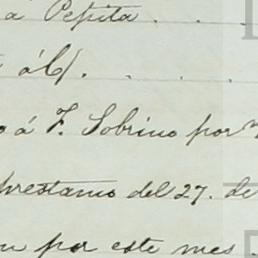 a Pepita . . . .
á F. Sobrino por
prestamo del 27. de
por este mes .